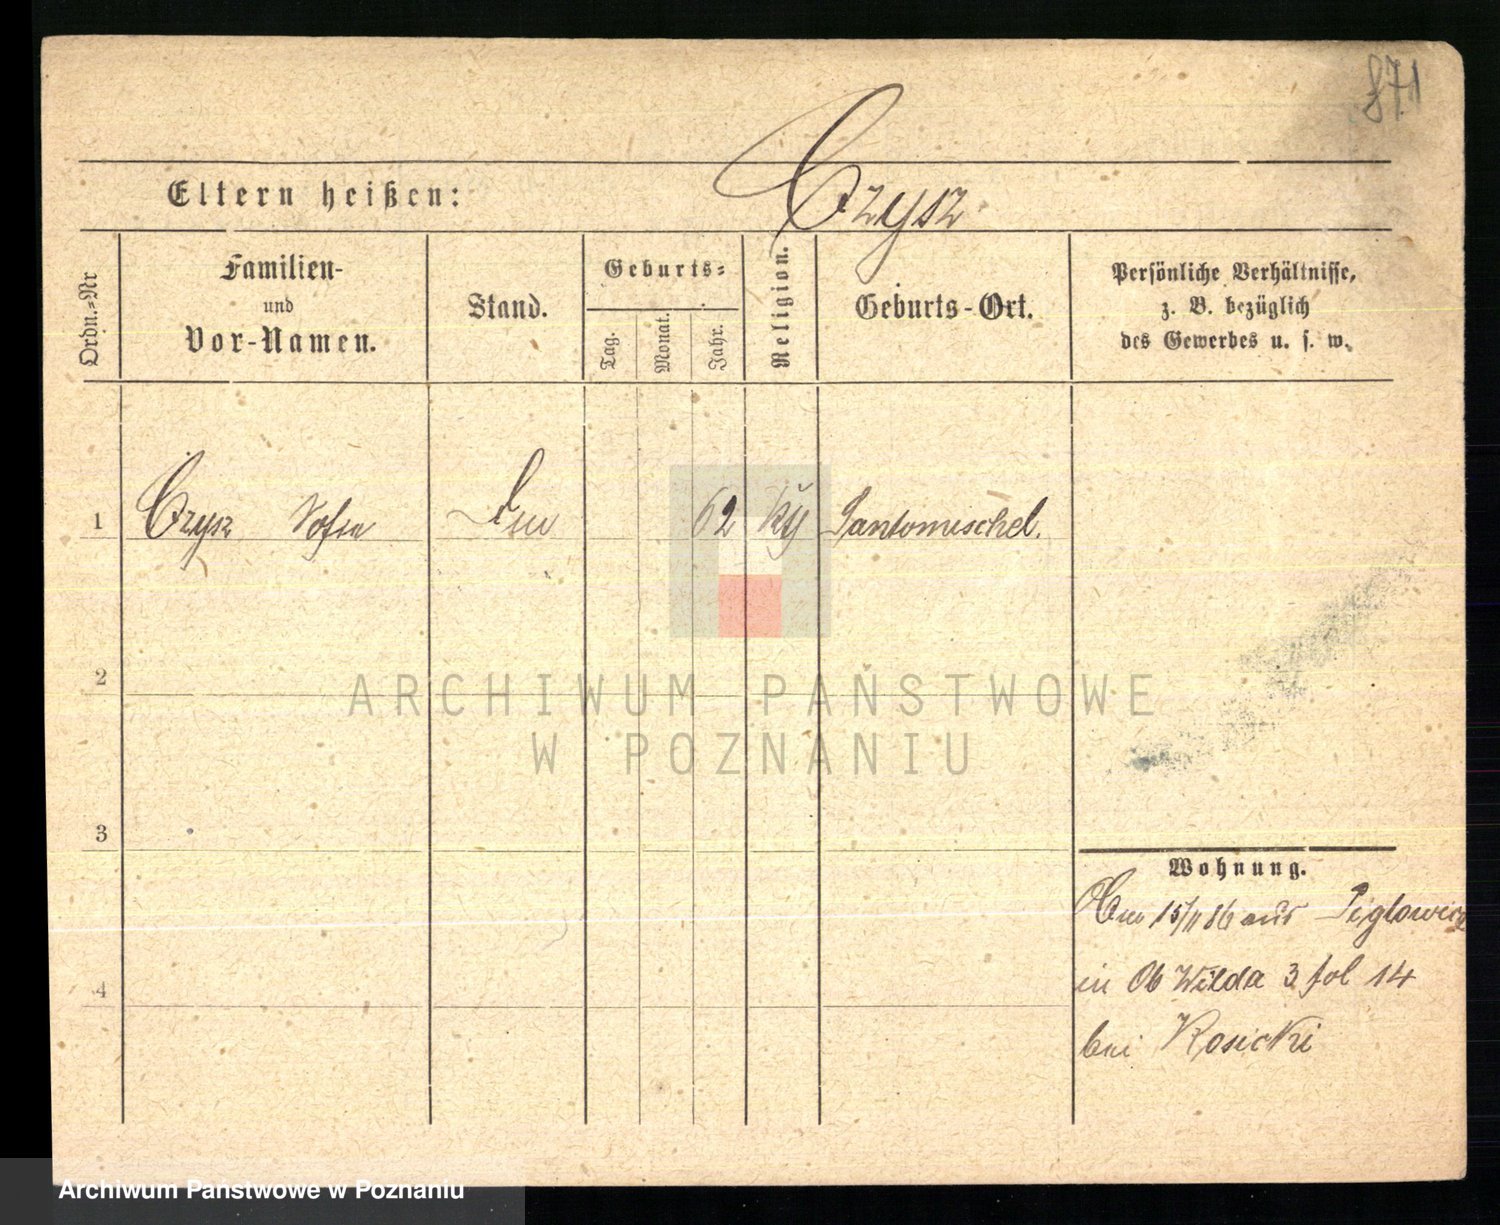 871
Eltern heißen: Czysz
Ordn.-Nr
Familien-
und
Vor-Namen.
Stand.
Geburts-
Tag.
Monat.
Jahr.
Religion.
Geburts-Ort.
Persönliche Verhältnisse,
z. B. bezüglich
des Gewerbes u. s. w.
1 Czysz Sofia 62 Santomischel.
2
ARCHIWUM PAŃSTWOWE
W POZNANIU
3
4
Wohnung.
15/11 86 aus Piglowice
in Ob Wilda 3 fol 14
bei Kosicki
Archiwum Państwowe w Poznaniu